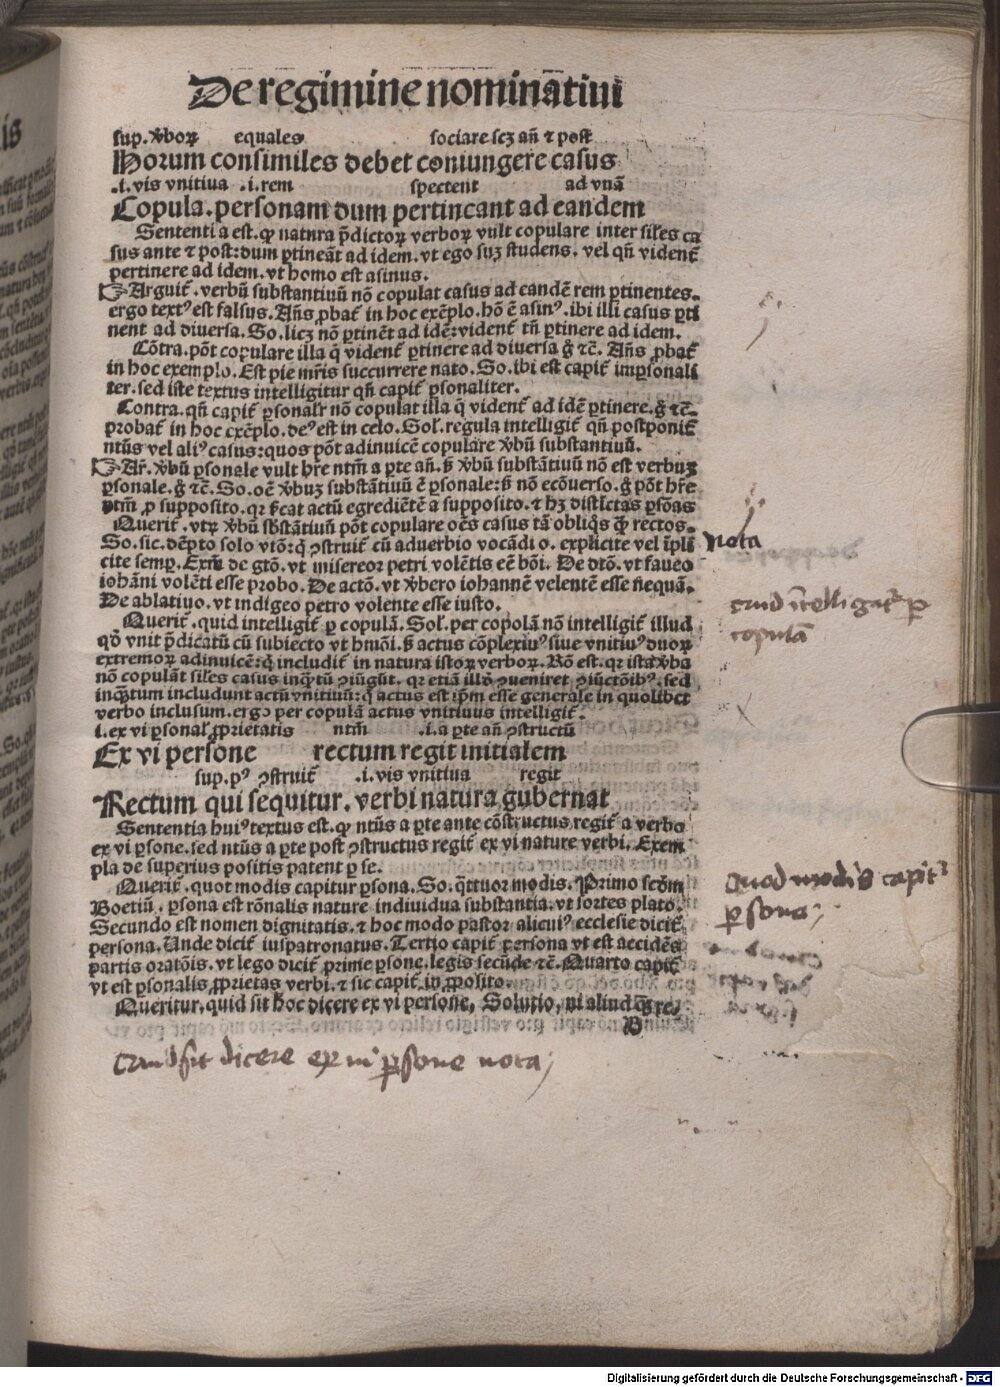 De regimine nominatiui
sup. v̄boꝝ equales sociare scꝫ an̄ ⁊ post
Horum consimiles debet coniungere casus
.i. vis vnitiua .i. rem spectent ad vnā
Copula. personam dum pertineant ad eandem
Sententia est. ꝙ natura p̄dictoꝝ verboꝝ vult copulare inter siłes ca
sus ante ⁊ post: dum ꝑtineāt ad idem. vt ego suꝫ studens. vel qn̄ videnť
pertinere ad idem. vt homo est asinus.
☞ Arguiť. verbū substantiuū nō copulat casus ad eandē rem ꝑtinentes.
ergo textꝰ est falsus. Añs ꝓbať in hoc exēplo. hō ē asinꝰ. ibi illi casus ꝑti
nent ad diuersa. So. licꝫ nō ꝑtinēt ad idē: videnť tn̄ ꝑtinere ad idem.
Cōtra. pōt copulare illa q̄ videnť ꝑtinere ad diuersa g̊ ⁊c̄. Añs ꝓbať
in hoc exemplo. Est pie mr̄is succurrere nato. So. ibi est capiť imꝑsonali
ter. sed iste textus intelligitur qn̄ capiť ꝑsonaliter.
Contra. qn̄ capiť ꝑsonalr̄ nō copulat illa q̄ videnť ad idē ꝑtinere. g̊ ⁊c̄.
probať in hoc exēplo. deꝰ est in celo. Soł. regula intelligiť qn̄ postponiť
ntūs vel aliꝰ casus: quos pōt adinuicē copulare v̄bū substantiuū.
☞ Ar̄. v̄bū ꝑsonale vult hr̄e ntm̄ a ꝑte añ. ꝟ v̄bū substātiuū nō est verbuꝫ
ꝑsonale. g̊ ⁊c̄. So. oē v̄buꝫ substātiuū ē ꝑsonale: ꝟ nō ecōuerso. g̊ pōt hr̄e
ntm̄ ꝓ supposito. qꝛ ꝟcat actū egrediētē a supposito. ⁊ hꝫ distīctas ꝑsōas
Queriť. vtꝝ v̄bū sb̄stātiuū pōt copulare oēs casus tā obliq̄s ꝙ̄ rectos.
So. sic. dēpto solo vtō: q̄ ɔstruiť cū aduerbio vocādi o. explicite vel īpli nota
cite semꝑ. Exm̄ de gtō. vt misereor petri volētis eē bōi. De dtō. vt faueo
iohāni volēti esse probo. De actō. vt v̄bero iohannē velentē esse neꝙ̄.
De ablatiuo. vt indigeo petro volente esse iusto.
quid ītelligať ꝑ
copulā
Queriť. quid intelligiť ꝑ copulā. Soł. per copolā nō intelligiť illud
qđ vnit p̄dicatū cū subiecto vt hmōi. ꝟ actus cōplexiuꝰ siue vnitiuꝰ duoꝝ
extremoꝝ adinuicē: q̄ includiť in natura istoꝝ verboꝝ. Rō est. qꝛ ista v̄ba
nō copulāt siłes casus inꝙ̄tū ɔiūgūt. qꝛ etiā illđ ɔueniret ɔiūctōibꝰ. sed
inꝙ̄tum includunt actū vnitiuū: q̄ actus est ip̄m esse generale in quolibet
verbo inclusum. ergo per copulā actus vnitiuus intelligiť.
i. ex vi ꝑsonał ꝓprietatis ntm̄ .i. a ꝑte añ ɔstructū
Ex vi persone rectum regit initialem
sup. pꝰ ɔstruiť .i. vis vnitiua regit
Rectum qui sequitur. verbi natura gubernat
Sententia huiꝰ textus est. ꝙ ntūs a ꝑte ante cōstructus regiť a verbo
ex vi ꝑsone. sed ntūs a ꝑte post ɔstructus regiť ex vi nature verbi. Exem
pla de superius positis patent ꝑ se.
Queriť. quot modis capitur ꝑsona. So. q̄ttuor modis. Primo scđm
Boetiū. ꝑsona est rōnalis nature indiuidua substantia. vt sortes plato.
Secundo est nomen dignitatis. ⁊ hoc modo pastor alicuiꝰ ecclesie diciť
persona. Unde diciť iuspatronatus. Tertio capiť persona vt est accidēs
partis oratōis. vt lego diciť prime ꝑsone. legis secūde ⁊c̄. Quarto capiť
vt est ꝑsonalis ꝓprietas verbi. ⁊ sic capiť in ꝓposito.
Quod modis capiť
ꝑsona;
Queritur. quid sit hoc dicere ex vi persone, Solutio, ni aliud ꝙ̄ re
B
quid sit dicere ex vi ꝑsone nota;
Digitalisierung gefördert durch die Deutsche Forschungsgemeinschaft - DFG